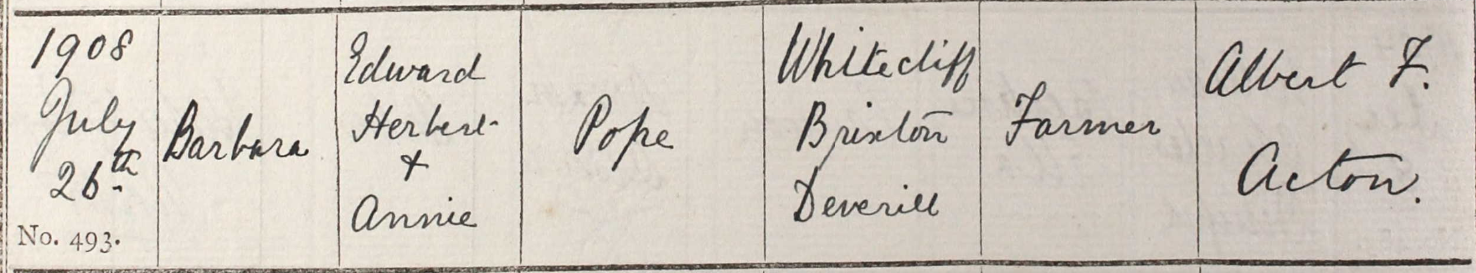 1908
July
26th
No. 493.
Barbara
Edward
Herbert
+
Annie
Pope
Whitecliff
Brixton
Deverill
Farmer
Albert F.
Acton.